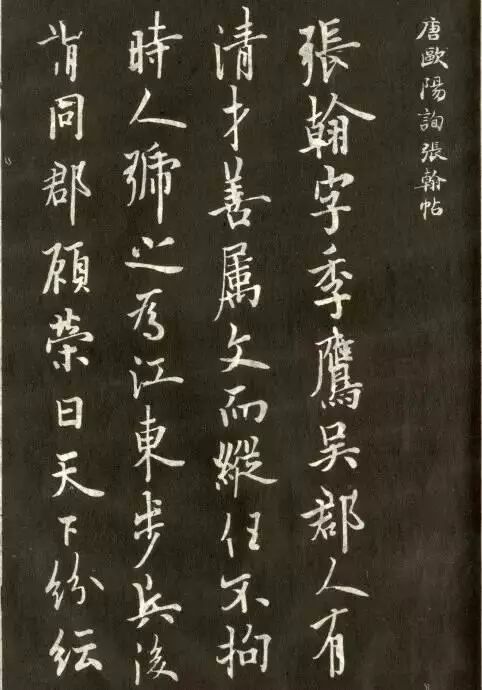 唐歐陽詢張翰帖
張翰字季鷹吳郡人有
清才善属文而縱任不拘
時人號之為江東步兵後
謂同郡顧榮曰天下紛紜